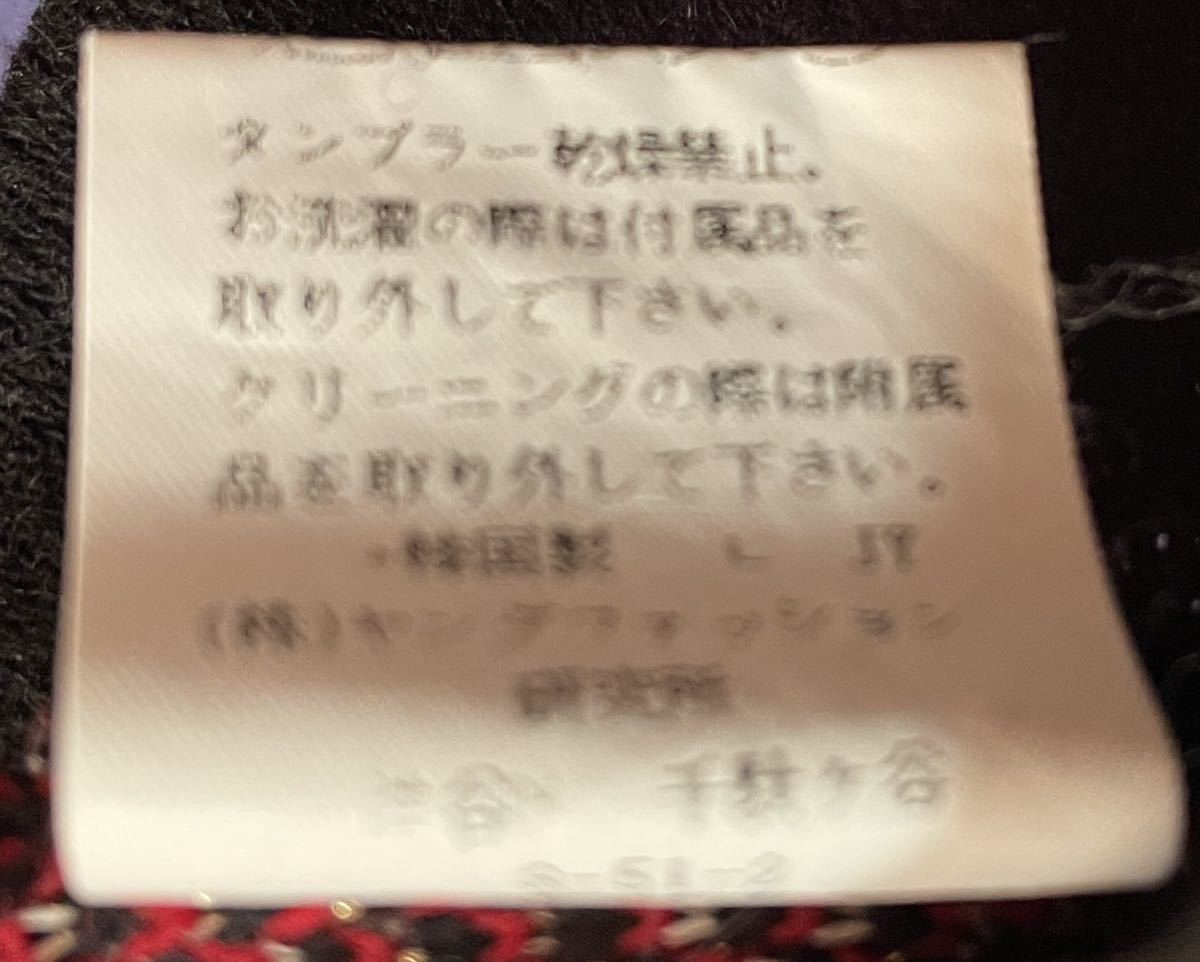 タンブラー乾燥禁止。
お洗濯の際は付属品を
取り外して下さい。
クリーニングの際は附属
品を取り外して下さい。
韓国製
(株)ヤングファッション
研究所
渋谷 千駄ヶ谷
3-51-2